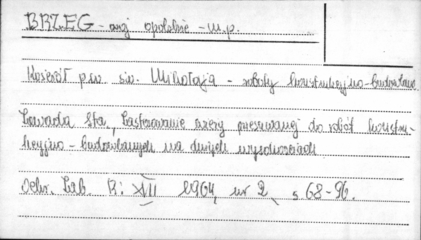 BRZEG - woj. opolskie - m.p.
Kościół p.w. św. Mikołaja - roboty konstrukcyjno-budowlane
Zawada Sta., Zastosowanie wieży przesuwanej do robót konstru-
kcyjno - budowlanych na dużych wysokościach
Ochr. Zab. R: XVII 1964, nr 2, s. 68-96.